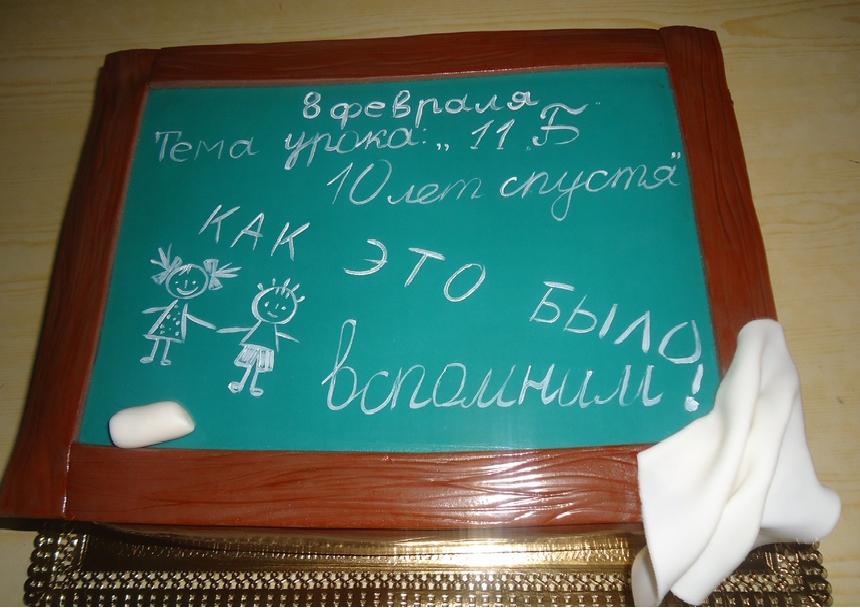 8 февраля
Тема урока: „11 Б
10 лет спустя"
КАК ЭТО БЫЛО
вспомним!